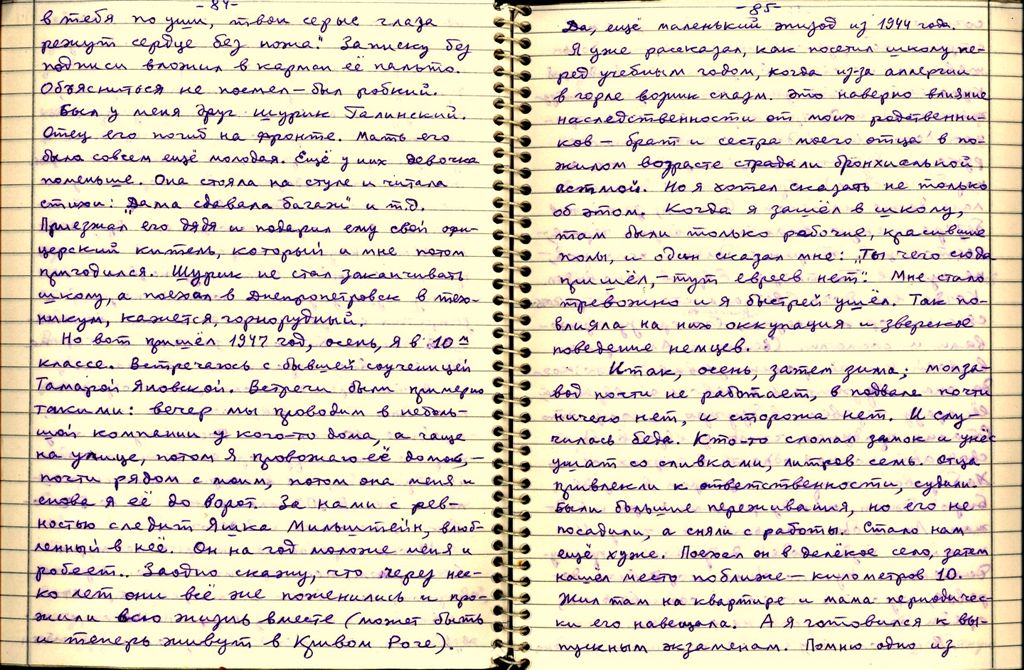 -84-
в тебя по уши, твои серые глаза
режут сердце без ножа." Записку без
подписи вложил в карман её пальто.
Объясниться не посмел – был робкий.
Был у меня друг Шурик Галинский.
Отец его погиб на фронте. Мать его
была совсем ещё молодая. Ещё у них девочка
поменьше. Она стояла на стуле и читала
стихи: "Дама сдавала багаж" и т.д.
Приезжал его дядя и подарил ему свой офи-
церский китель, который и мне потом
пригодился. Шурик не стал заканчивать
школу, а поехал в Днепропетровск в тех-
никум, кажется, горнорудный.
Но вот пришёл 1947 год, осень, я в 10м
классе. Встречаюсь с бывшей соученицей
Тамарой Яновской. Встречи были примерно
такими: вечер мы проводим в неболь-
шой компании у кого-то дома, а чаще
на улице, потом я провожаю её домой, –
почти рядом с моим, потом она меня и
снова я её до ворот. За нами с рев-
ностью следит Яшка Мильштейн, влюб-
ленный в неё. Он на год моложе меня и
робеет.. Заодно скажу, что через нес-
ко лет они всё же поженились и про-
жили всю жизнь вместе (может быть
и теперь живут в Кривом Роге).
-85-
Да, ещё маленький эпизод из 1944 года.
Я уже рассказал, как посетил школу пе-
ред учебным годом, когда из-за аллергии
в горле возник спазм. Это наверно влияние
наследственности от моих родственни-
ков – брат и сестра моего отца в по-
жилом возрасте страдали бронхиальной
астмой. Но я хотел сказать не только
об этом. Когда я зашёл в школу,
там были только рабочие, красившие
полы, и один сказал мне: „Ты чего сюда
пришёл, – тут евреев нет". Мне стало
тревожно и я быстрей ушёл. Так по-
влияла на них оккупация и зверское
поведение немцев.
Итак, осень, затем зима; молза-
вод почти не работает, в подвале почти
ничего нет, и сторожа нет. И слу-
чилась беда. Кто-то сломал замок и унёс
ушат со сливками, литров семь. Отца
привлекли к ответственности, судили
Были большие переживания, но его не
посадили, а сняли с работы. Стало нам
ещё хуже. Поехал он в далёкое село, затем
нашёл место поближе – километров 10.
Жил там на квартире и мама периодичес-
ки его навещала. А я готовился к вы-
пускным экзаменам. Помню одно из